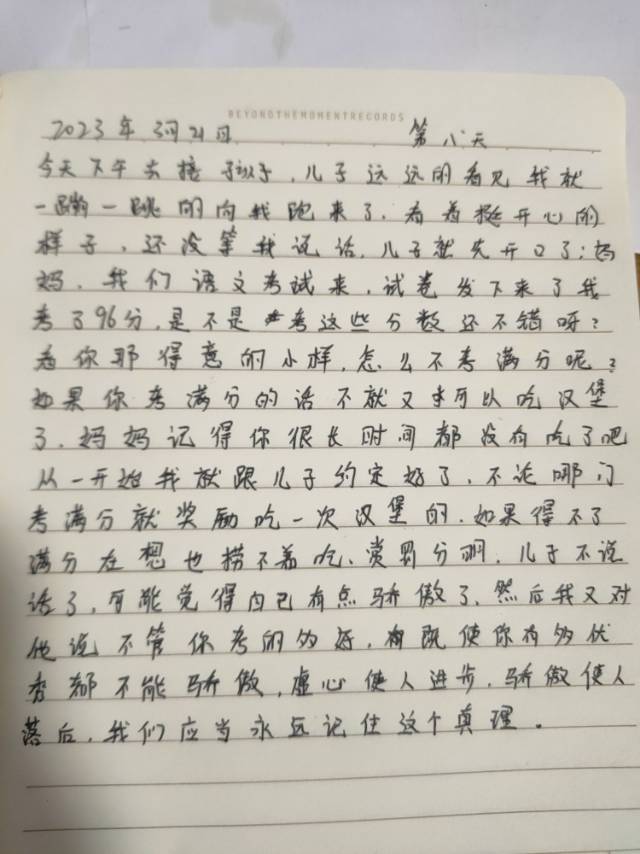 BEYONDTHEMOMENTRECORDS
2023年3月21日 第八天
今天下午去接孩子,儿子远远的看见我就
一蹦一跳的向我跑来了.看着挺开心的
样子,还没等我说话,儿子就先开口了:妈
妈,我们语文考试来,试卷发下来了我
考了96分,是不是考这些分数还不错呀?
看你那得意的小样,怎么不考满分呢?
如果你考满分的话不就又可以吃汉堡
了.妈妈记得你很长时间都没有吃了吧
从一开始我就跟儿子约定好了,不论哪门
考满分就奖励吃一次汉堡的.如果得不了
满分在想也捞不着吃、赏罚分明,儿子不说
话了,可能觉得自己有点骄傲了、然后我又对
他说不管你考的多好,既使你有多优
秀都不能骄傲,虚心使人进步,骄傲使人
落后,我们应当永远记住这个真理.